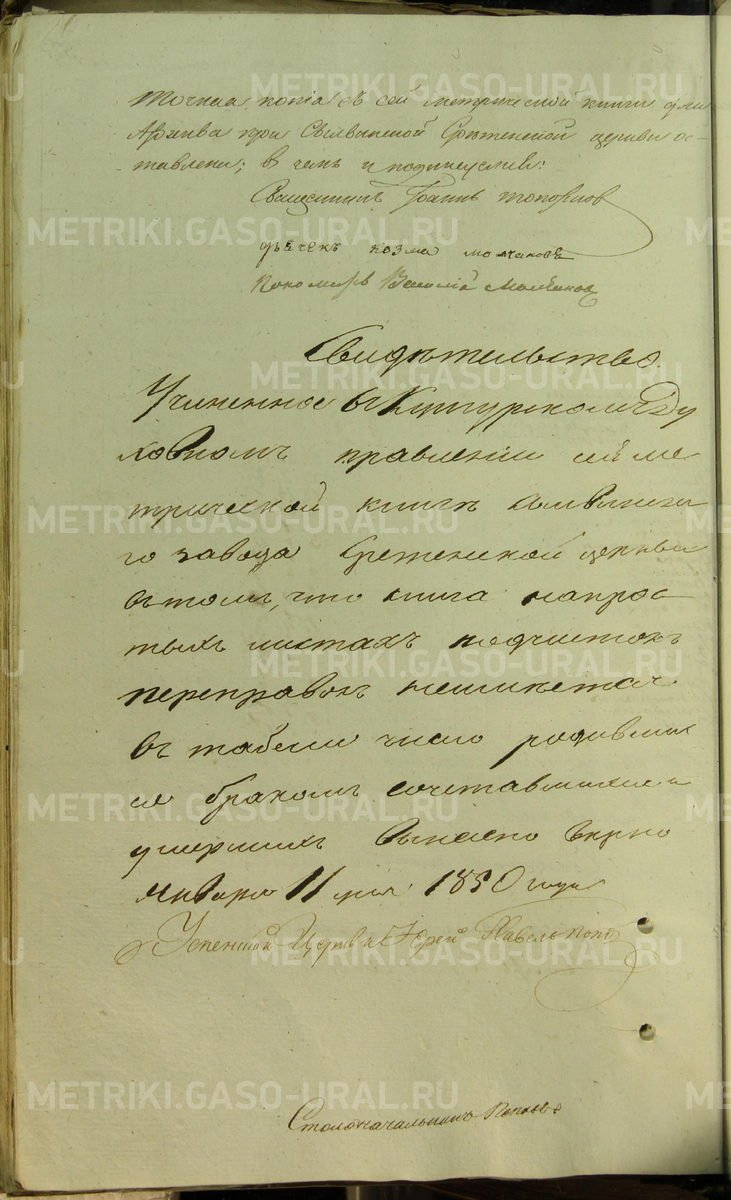 Точная копія съ сей метрической книги для
Архива при Сылвинской Срѣтенской церкви ос-
тавлена; въ чемъ и подписуемся:
Священникъ Іоаннъ Топорковъ
дьячекъ козма молчановъ
Пономарь Василій Молчановъ
Свидѣтельство.
Учиненное въ Кунгурскомъ Ду
ховномъ правленіи сей ме
трической книгѣ Сылвинска
го завода Сретенской церкви
въ томъ, что книга на прос
тыхъ листахъ подчистокъ
переправокъ неимѣетъ
въ табели число родивших
ся бракомъ сочетавшихся и
умершихъ вынесено вѣрно
Января 11 дня 1850 года
Успенской Церкви Іерей Павелъ Попо
Столоначальникъ Поповъ
METRIKI.GASO-URAL.RU